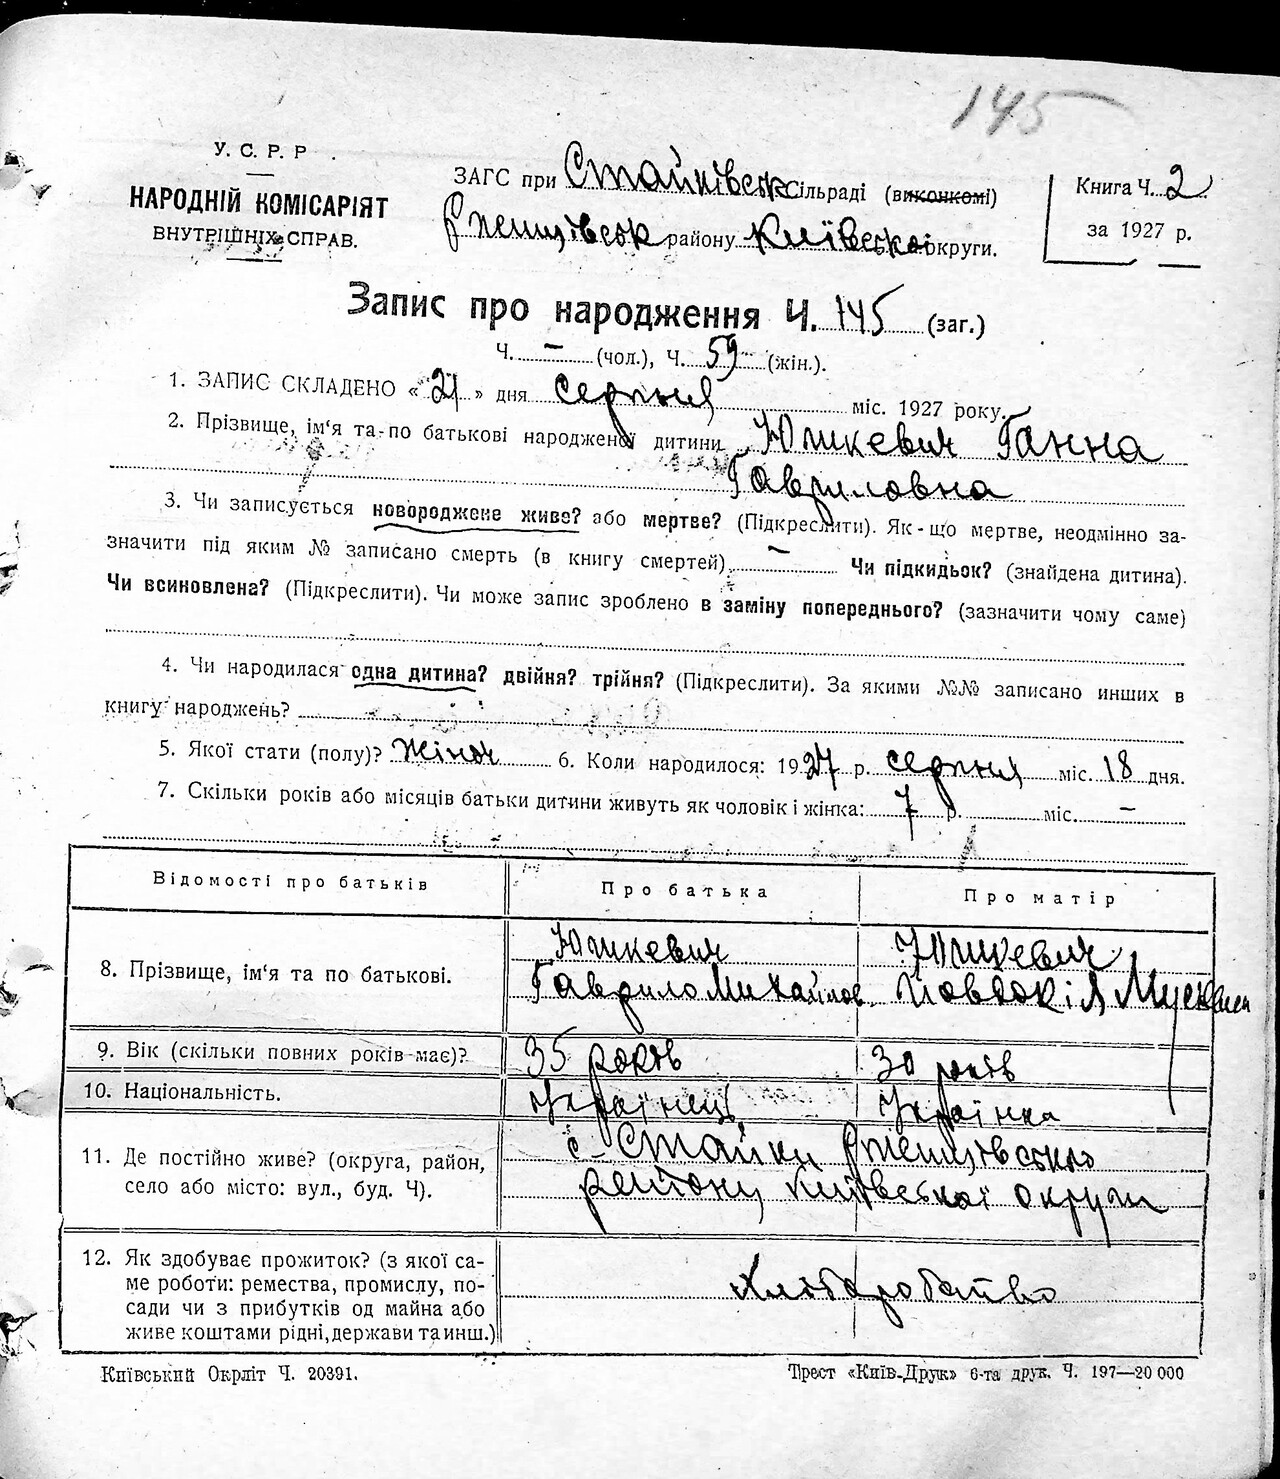 145
У. С. Р. Р.
НАРОДНІЙ КОМІСАРІЯТ
ВНУТРІШНІХ СПРАВ.
ЗАГС при Стайківськ сільраді (виконкомі)
Ржищівськ району Київської округи.
Книга Ч. 2
за 1927 р.
Запис про народження Ч. 145 (заг.)
Ч. — (чол.), Ч. 59 (жін.).
1. ЗАПИС СКЛАДЕНО «21» дня серпня міс. 1927 року.
2. Прізвище, ім'я та по батькові народженої дитини Юшкевич Ганна
Гавриловна
3. Чи записується новороджене живе? або мертве? (Підкреслити). Як-що мертве, неодмінно за-
значити під яким № записано смерть (в книгу смертей) — Чи підкидьок? (знайдена дитина).
Чи всиновлена? (Підкреслити). Чи може запис зроблено в заміну попереднього? (зазначити чому саме)
4. Чи народилася одна дитина? двійня? трійня? (Підкреслити). За якими №№ записано инших в
книгу народжень?
5. Якої стати (полу)? Жіноч 6. Коли народилося: 1927 р. серпня міс. 18 дня.
7. Скільки років або місяців батьки дитини живуть як чоловік і жінка: 7 р. міс. —
Відомості про батьків Про батька Про матір
8. Прізвище, ім'я та по батькові. Юшкевич Гаврило Михайлов. Юшкевич Йовдокія
9. Вік (скільки повних років має)? 35 років 30 років
10. Національність. Українець Українка
11. Де постійно живе? (округа, район,
село або місто: вул., буд. Ч).
с. Стайки Ржищівського
району Київської округи
12. Як здобуває прожиток? (з якої са-
ме роботи: ремества, промислу, по-
сади чи з прибутків од майна або
живе коштами рідні, держави та инш.)
Хліборобство
Київський Окрліт Ч. 20391.
Трест «Київ-Друк» 6-та друк. Ч. 197—20 000